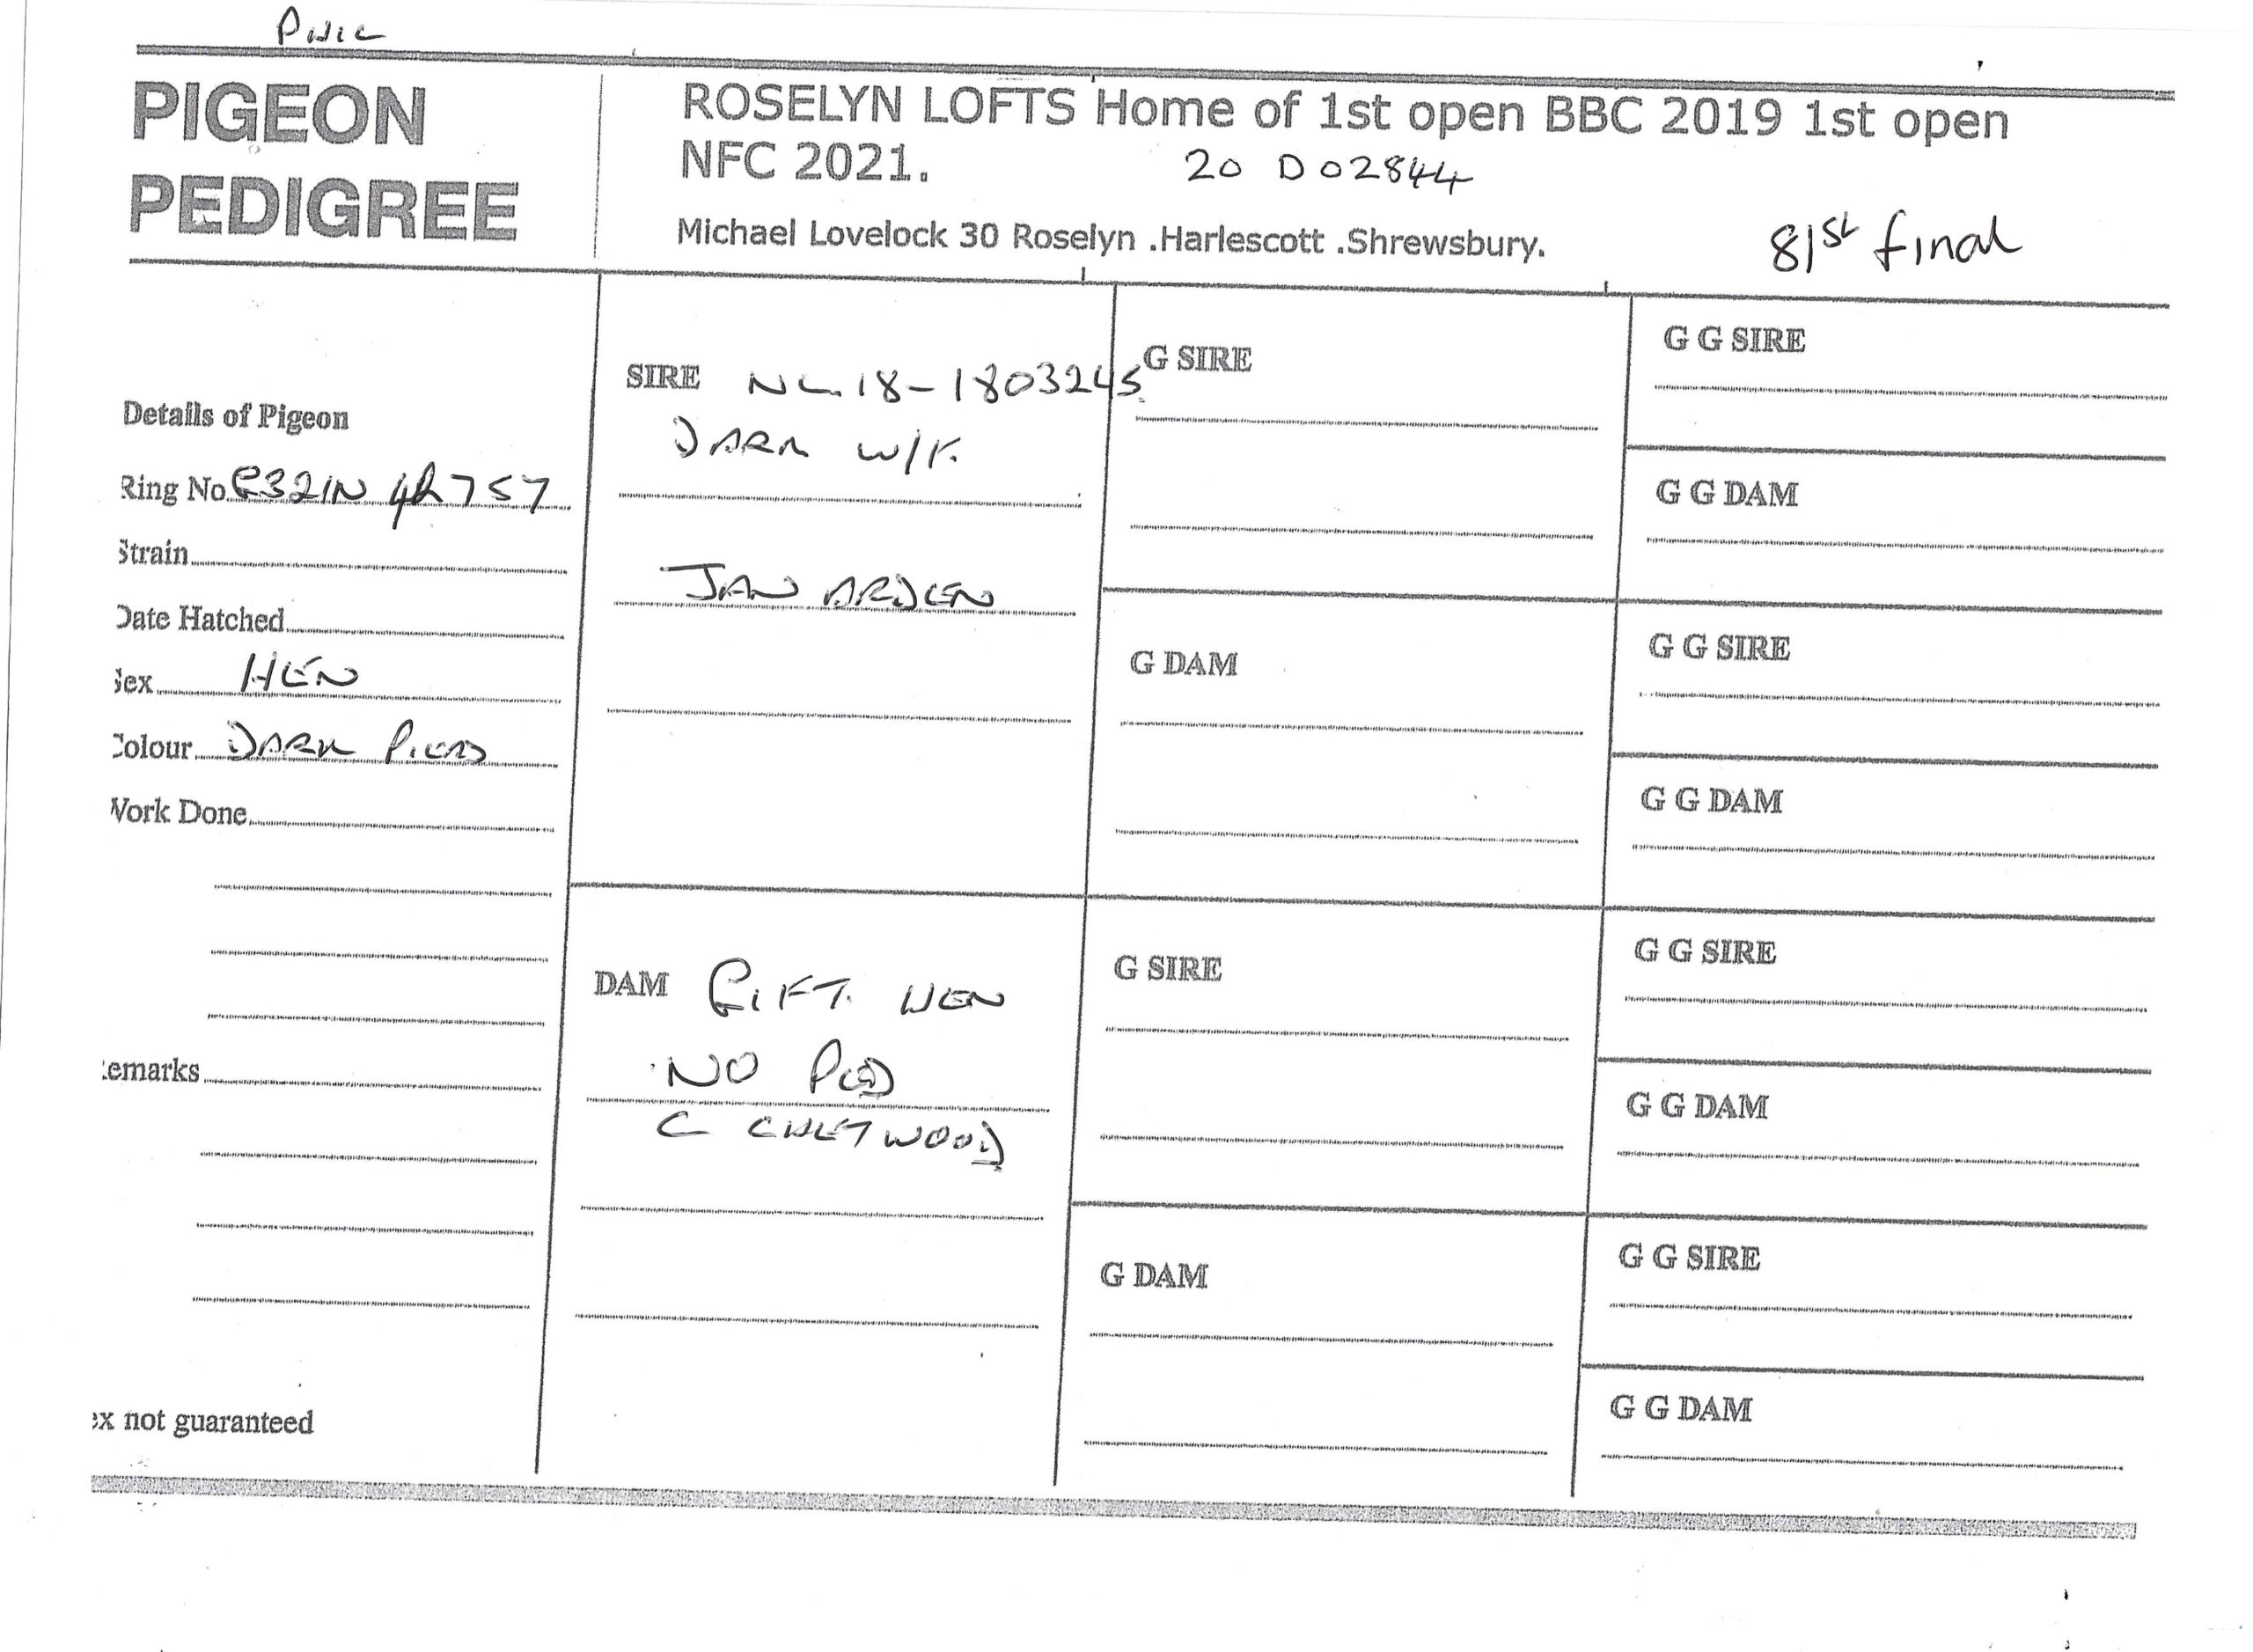 PIGEON
PEDIGREE
ROSELYN LOFTS Home of 1st open BBC 2019 1st open
NFC 2021.
20 D02844
Michael Lovelock 30 Roselyn .Harlescott .Shrewsbury.
81st final
Details of Pigeon
Ring No
757
Strain
Date Hatched
Sex HEN
Colour DARK PIED
Work Done
Remarks
ex not guaranteed
SIRE NL 18-1803245
DARK W/F.
JAN ARDEN
DAM GIFT HEN
NO PED
C CHETWOOD
G SIRE
G DAM
G SIRE
G DAM
G G SIRE
G G DAM
G G SIRE
G G DAM
G G SIRE
G G DAM
G G SIRE
G G DAM